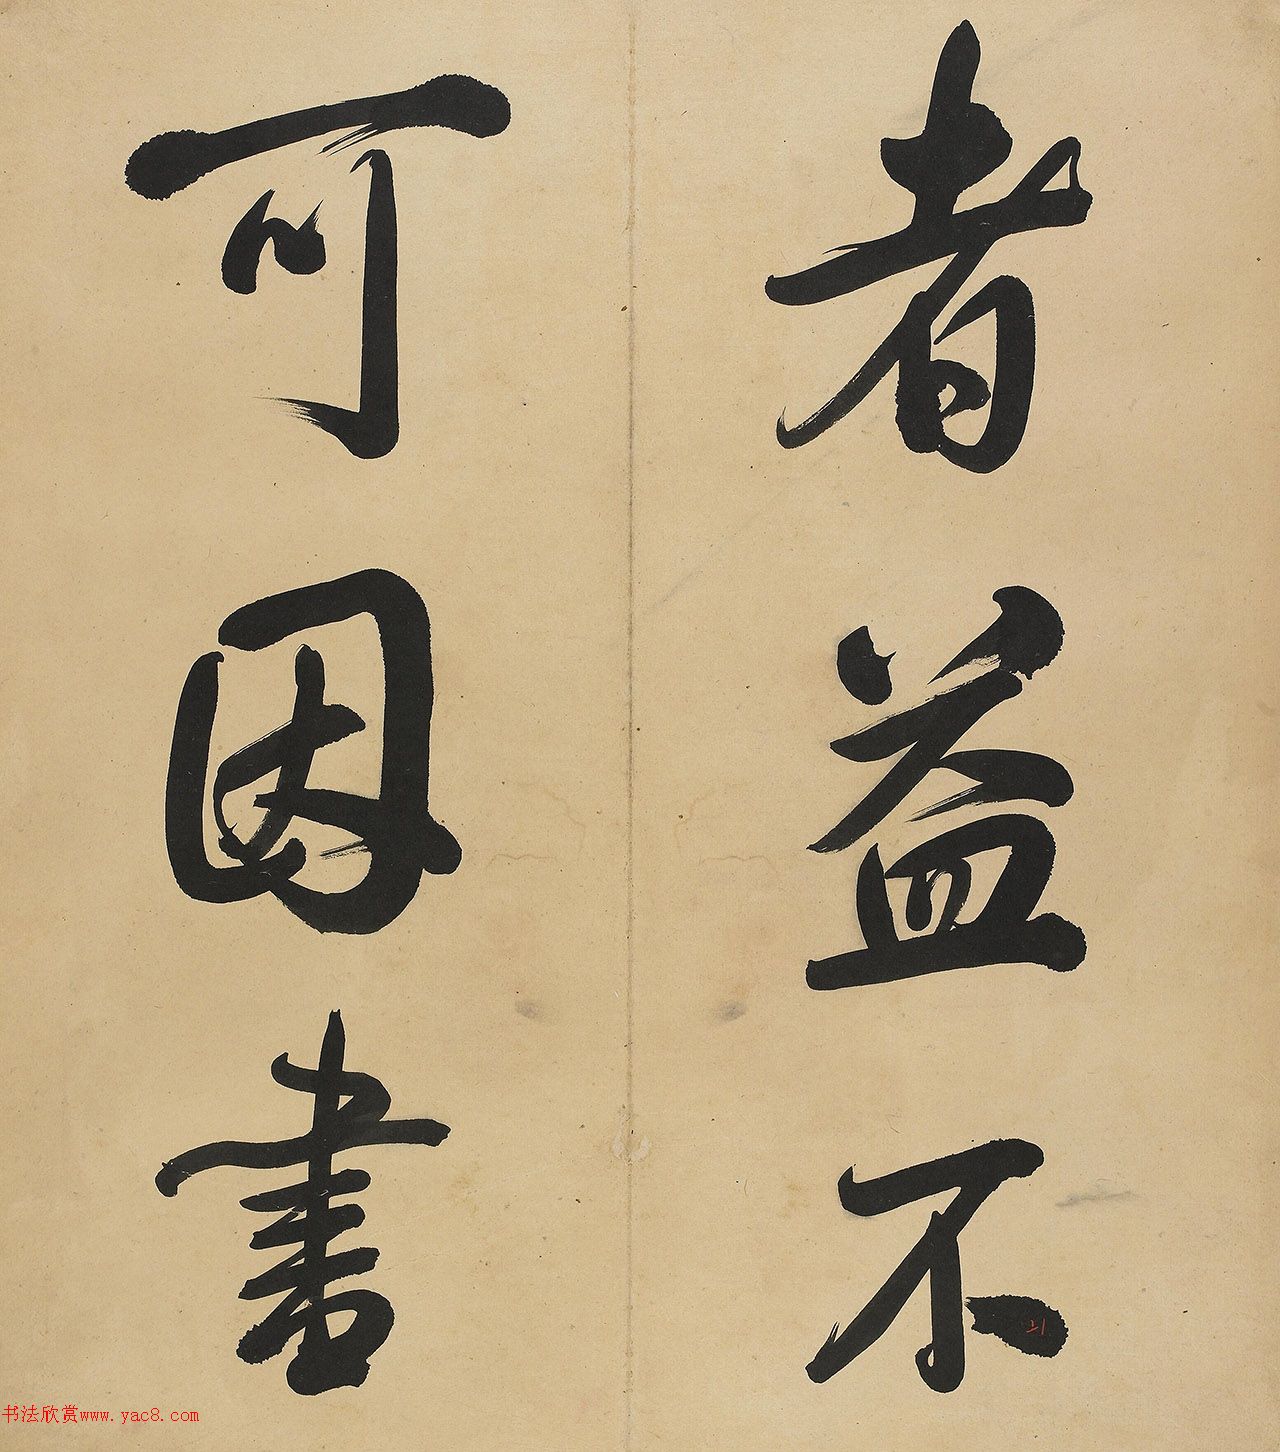 者益不
可因書
书法欣赏www.yac8.com